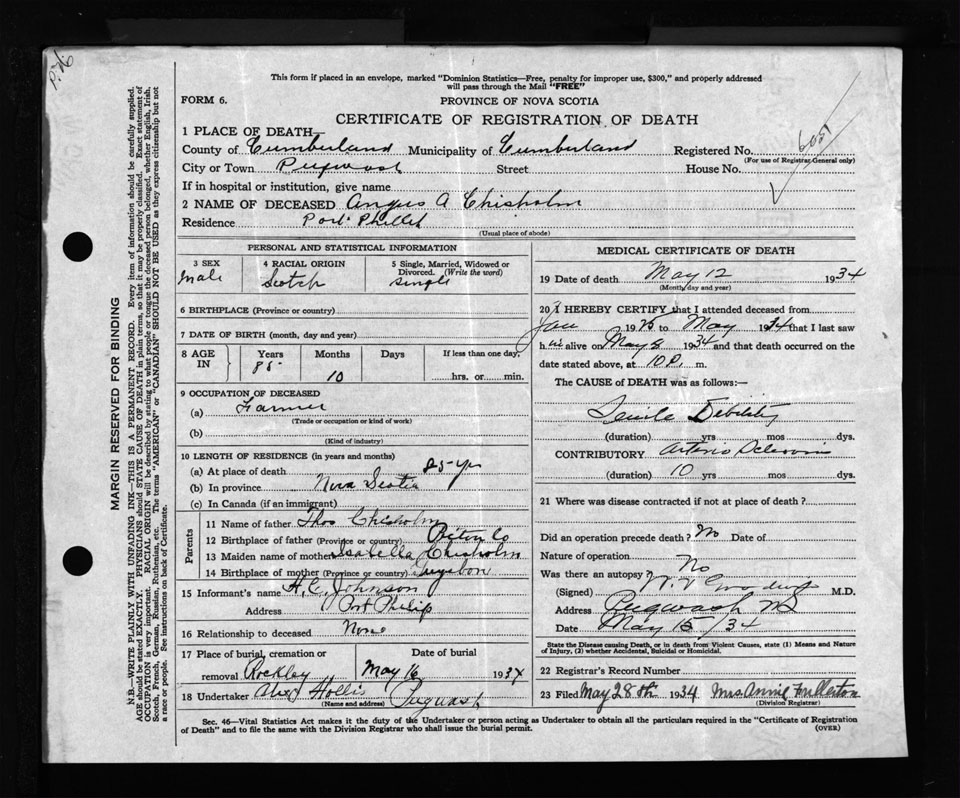 This form if placed in an envelope, marked "Dominion Statistics—Free, penalty for improper use, $300," and properly addressed
will pass through the Mail "FREE"
FORM 6.
PROVINCE OF NOVA SCOTIA
CERTIFICATE OF REGISTRATION OF DEATH
1 PLACE OF DEATH—
County of Cumberland Municipality of Cumberland Registered No.
(For use of Registrar General only)
City or Town Pugwash Street House No.
If in hospital or institution, give name
2 NAME OF DECEASED Angus A Chisholm
Residence Port Phillip
(Usual place of abode)
PERSONAL AND STATISTICAL INFORMATION
3 SEX Male
4 RACIAL ORIGIN Scotch
5 Single, Married, Widowed or Divorced. (Write the word) Single
6 BIRTHPLACE (Province or country)
7 DATE OF BIRTH (month, day and year)
8 AGE IN Years 85 Months 10 Days If less than one day, hrs. or min.
9 OCCUPATION OF DECEASED
(a) Farmer
(Trade or occupation or kind of work)
(b)
(Kind of industry)
10 LENGTH OF RESIDENCE (in years and months)
(a) At place of death 85 yrs
(b) In province Nova Scotia
(c) In Canada (if an immigrant)
Parents
11 Name of father Thos Chisholm
12 Birthplace of father (Province or country) Pictou Co
13 Maiden name of mother Isabella Chisholm
14 Birthplace of mother (Province or country)
15 Informant's name H. C. Johnson
Address Port Philip
16 Relationship to deceased None
17 Place of burial, cremation or removal Rockley
Date of burial May 16 1934
18 Undertaker Hollis Pugwash
(Name and address)
MEDICAL CERTIFICATE OF DEATH
19 Date of death May 12 1934
(Month, day and year)
20 I HEREBY CERTIFY that I attended deceased from
Jan 1925 to May 1934 that I last saw
h im alive on May 1934 and that death occurred on the
date stated above, at 10 P. m.
The CAUSE of DEATH was as follows:—
Senile Debility
(duration) yrs mos dys.
CONTRIBUTORY Arterio Sclerosis
(duration) 10 yrs mos dys.
21 Where was disease contracted if not at place of death?
Did an operation precede death? No Date of
Nature of operation
Was there an autopsy? No
(Signed) M.D.
Address Pugwash NS
Date May 15/34
State the Disease causing Death, or in death from Violent Causes, state (1) Means and Nature
of Injury, (2) whether Accidental, Suicidal or Homicidal.
22 Registrar's Record Number
23 Filed May 28th 1934 Mrs Annie Fullerton
(Division Registrar)
Sec. 46—Vital Statistics Act makes it the duty of the Undertaker or person acting as Undertaker to obtain all the particulars required in the "Certificate of Registration
of Death" and to file the same with the Division Registrar who shall issue the burial permit.
(OVER)
MARGIN RESERVED FOR BINDING
N.B.—WRITE PLAINLY WITH UNFADING INK—THIS IS A PERMANENT RECORD. Every item of information should be carefully supplied.
AGE should be stated EXACTLY. PHYSICIANS should STATE CAUSE OF DEATH in plain terms, so that it may be properly classified. Exact statement of
OCCUPATION is very important. RACIAL ORIGIN will be described by stating to what people or tongue the deceased person belonged, whether English, Irish,
Scotch, French, German, Russian, Ruthenian, etc. The terms "AMERICAN" or "CANADIAN" SHOULD NOT BE USED as they express citizenship but not
a race or people. See instructions on back of Certificate.